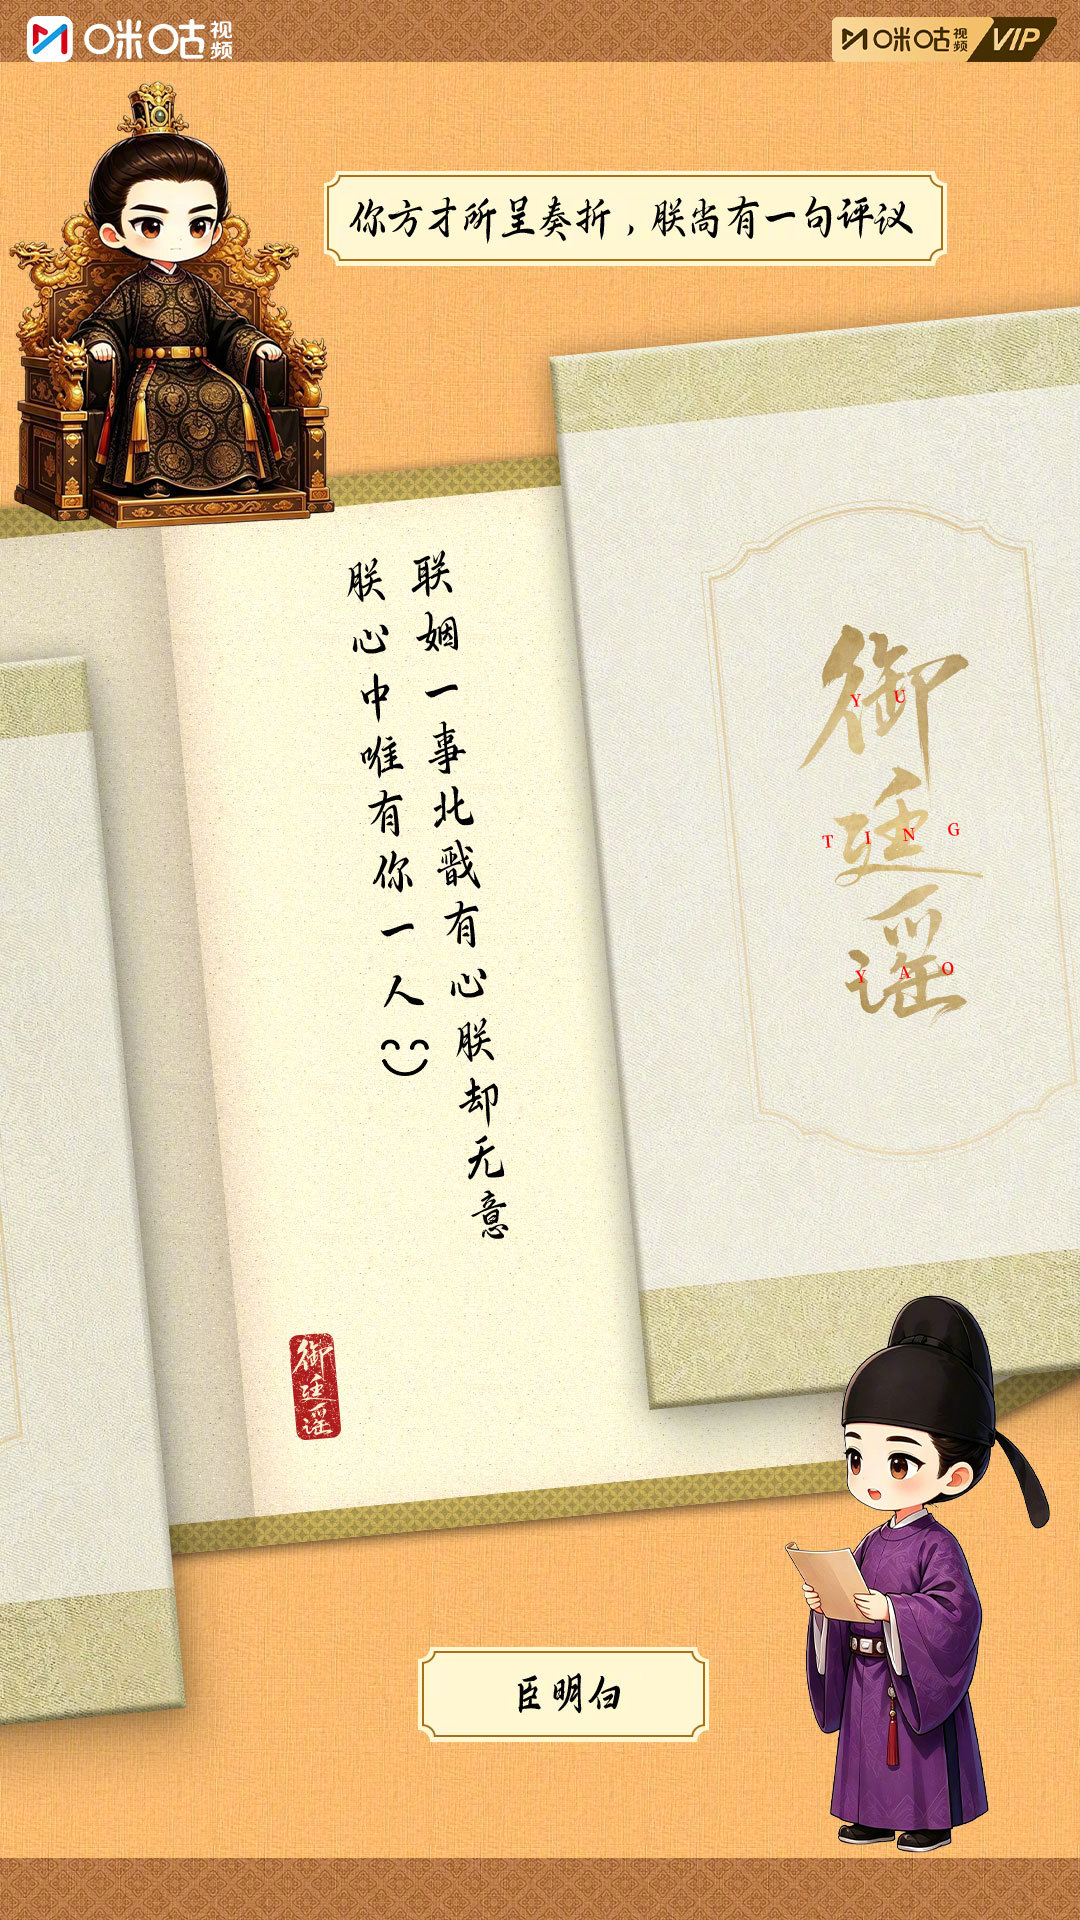 咪咕视频
咪咕视频 VIP
你方才所呈奏折，朕尚有一句评议
联姻一事北戬有心朕却无意
朕心中唯有你一人
御廷谣
YU
TING
YAO
御廷谣
臣明白